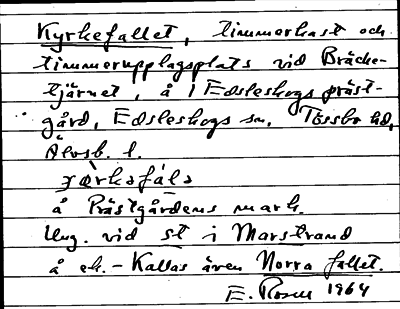 Kyrkefallet, timmerkast och
timmerupplagsplats vid Bräcke-
tjärnet, å 1 Edsleskogs präst-
gård, Edsleskogs sn, Tössbo hd,
Älvsb. l.
å Prästgårdens mark.
Ung. vid st i Marstrand
å ek. - Kallas även Norra fallet.
E. Rosen 1964